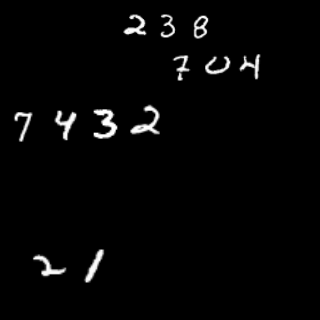 238
704
7432
21